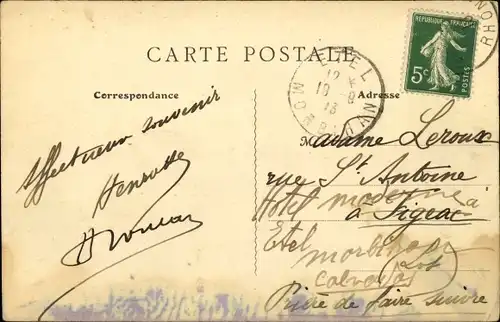 CARTE POSTALE
Correspondance
Adresse
REPUBLIQUE FRANÇAISE
5c
POSTES
ETEL
MORBIHAN
Affectueux souvenir
Madame Leroux
rue St Antoine
Hotel moderne
à Figeac
Etel morbihan
Lot
Calvados
Prière de faire suivre